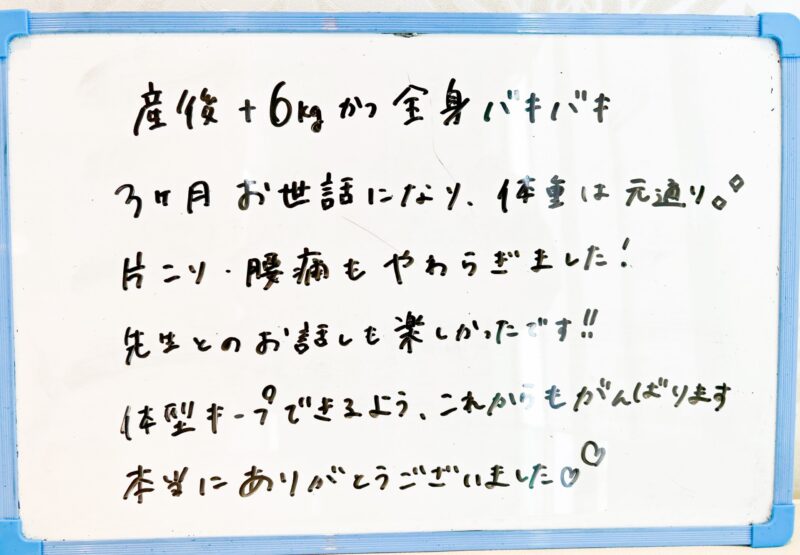 産後+6kgかつ全身バキバキ
3ヶ月お世話になり、体重は元通り。
片こり・腰痛もやわらぎました！
先生とのお話しも楽しかったです!!
体型キープできるよう、これからもがんばります
本当にありがとうございました♡♡